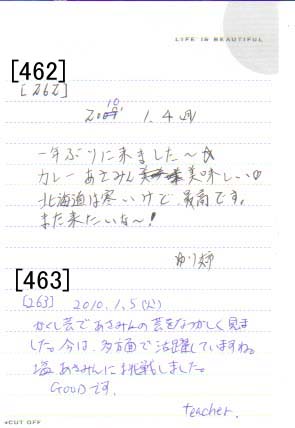 LIFE is BEAUTIFUL
[462]
[262]
2009 10 1.4 (月)
一年ぶりに来ました〜☆
カレー あさみん 美味しい♡
北海道は寒いけど、最高です。
また来たいな〜!
[463]
[263] 2010.1.5 (火)
かくし芸であさみんの芸をなつかしく見ま
した。今は、多方面で活躍していますね。
塩あさみんに挑戦しました。
GOODです。
teacher.
*CUT OFF